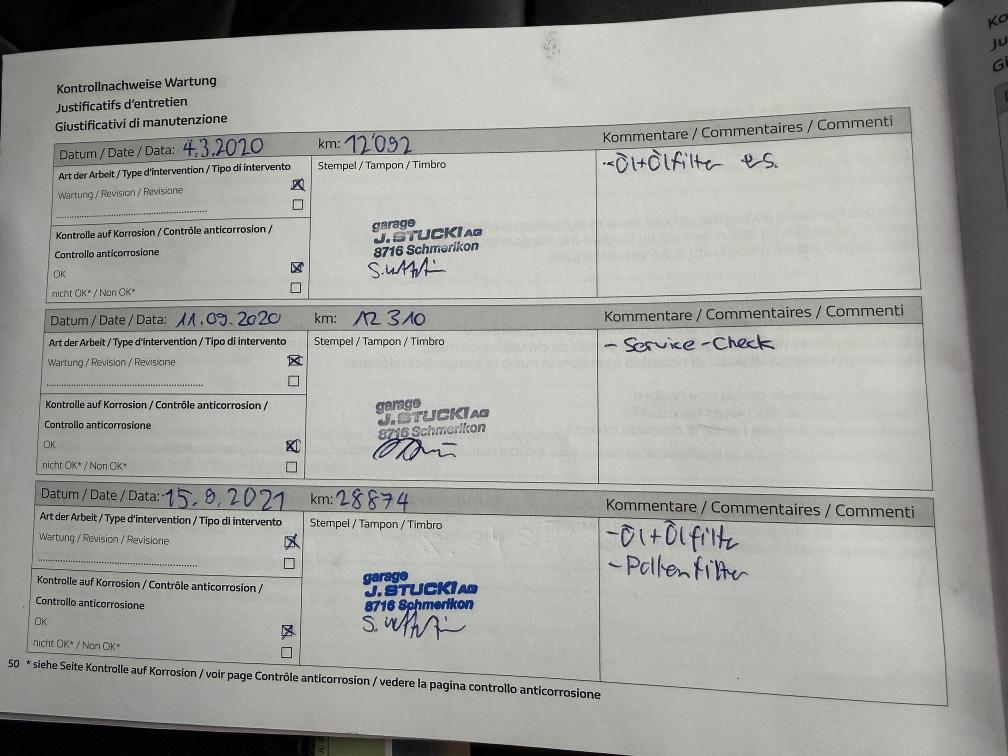 Kontrollnachweise Wartung
Justificatifs d'entretien
Giustificativi di manutenzione
Datum / Date / Data: 4.3.2020 km: 12'092 Kommentare / Commentaires / Commenti
Art der Arbeit / Type d'intervention / Tipo di intervento
Stempel / Tampon / Timbro
- Öl+Ölfilter
Wartung / Revision / Revisione
Kontrolle auf Korrosion / Contrôle anticorrosion /
Controllo anticorrosione
garage
J. STUCKI AG
8716 Schmerikon
OK
nicht OK* / Non OK*
Datum / Date / Data: 11.09.2020 km: 12 310 Kommentare / Commentaires / Commenti
Art der Arbeit / Type d'intervention / Tipo di intervento
Stempel / Tampon / Timbro
- Service-Check
Wartung / Revision / Revisione
Kontrolle auf Korrosion / Contrôle anticorrosion /
Controllo anticorrosione
garage
J. STUCKI AG
8716 Schmerikon
OK
nicht OK* / Non OK*
Datum / Date / Data: 15.9.2021 km: 28874 Kommentare / Commentaires / Commenti
Art der Arbeit / Type d'intervention / Tipo di intervento
Stempel / Tampon / Timbro
- Öl+Ölfilter
- Pollenfilter
Wartung / Revision / Revisione
Kontrolle auf Korrosion / Contrôle anticorrosion /
Controllo anticorrosione
garage
J. STUCKI AG
8716 Schmerikon
OK
nicht OK* / Non OK*
50 * siehe Seite Kontrolle auf Korrosion / voir page Contrôle anticorrosion / vedere la pagina controllo anticorrosione
Ko
Ju
Gi